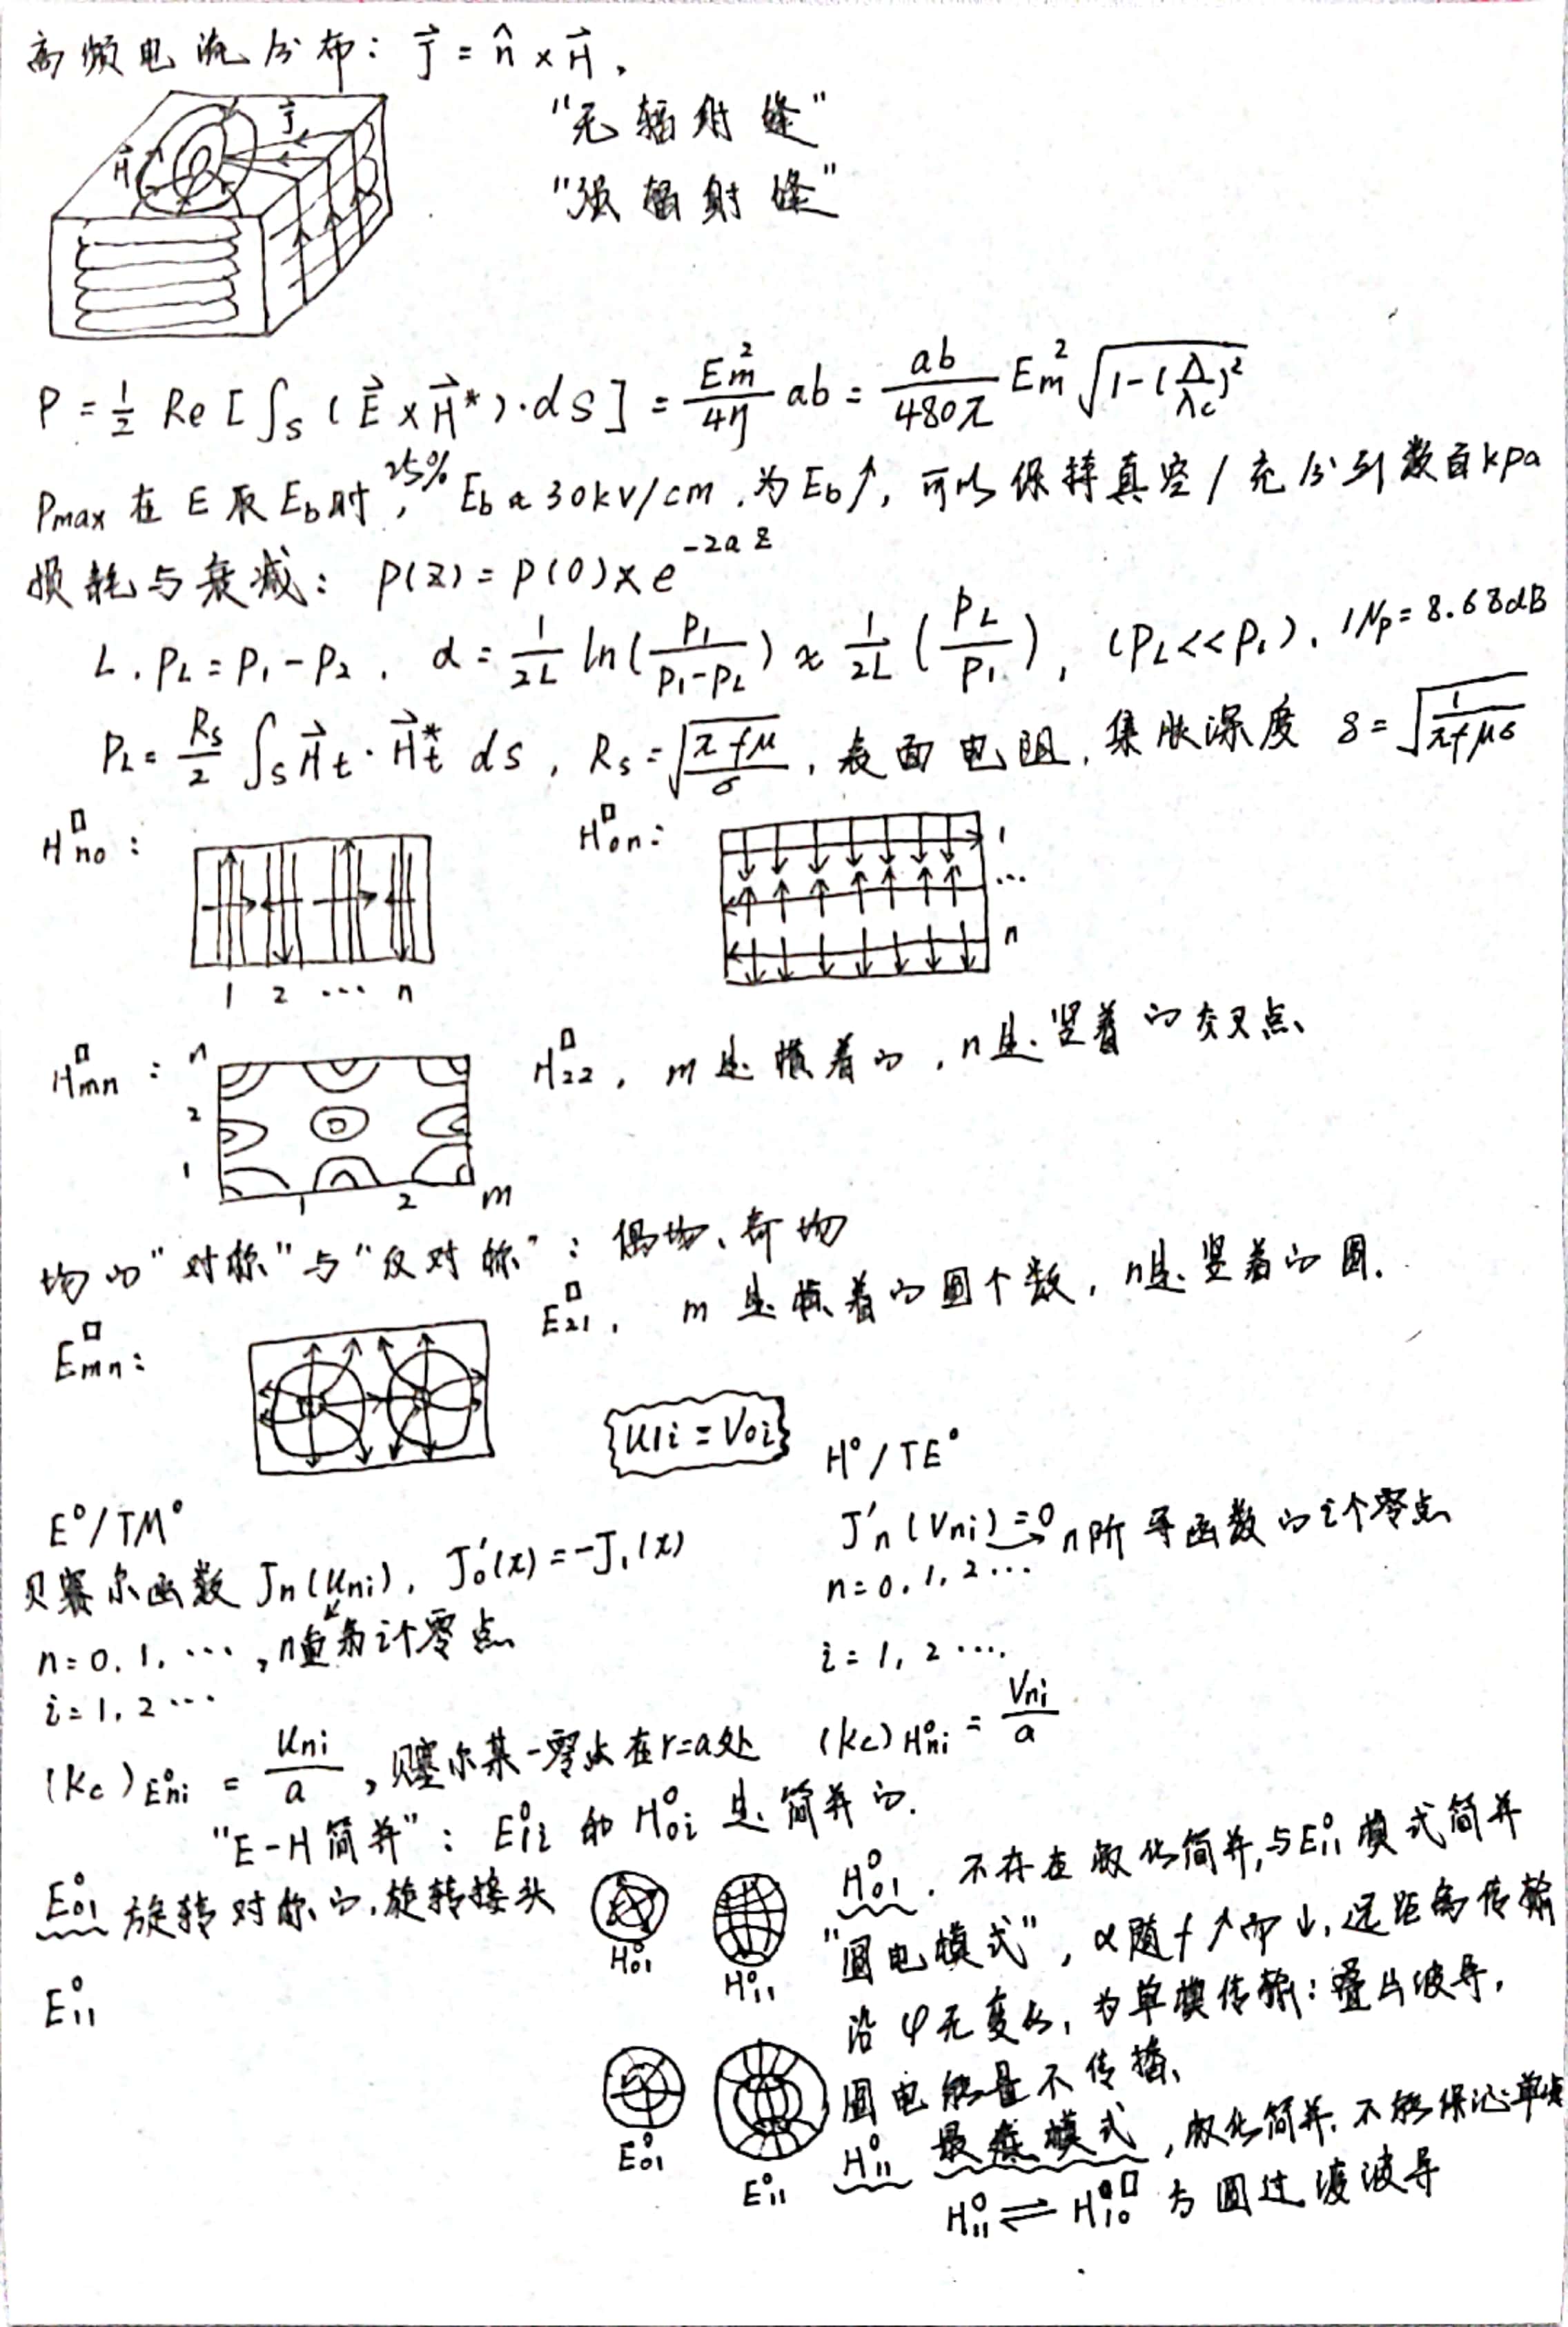 高频电流分布: J⃗ = n̂ × H⃗,
"无辐射缝"
"强辐射缝"
J⃗
H⃗
P = 1/2 Re [∫_S (E⃗ × H⃗*)·dS] = E_m²/4η ab = ab/480π E_m² √(1-(λ/λc)²)
Pmax 在 E 取 E_b 时, 25% E_b ≈ 30kV/cm, 为 E_b↑, 可以保持真空/充分到数百kpa
损耗与衰减: P(z) = P(0) × e^(-2αz)
L. P_L = P_1 - P_2. α = 1/2L ln(P_1/(P_1-P_L)) ≈ 1/2L (P_L/P_1), (P_L<<P_1). 1Np = 8.68dB
P_L = R_s/2 ∫_S H⃗_t · H⃗_t* ds, R_s = √(πfμ/σ), 表面电阻, 集肤深度 δ = √(1/πfμσ)
H□_n0:
1 2 ⋯ n
H□_0n:
1
⋯
n
H□_mn:
n
2
1
1 2 m
H□_22, m是横着的, n是竖着的交叉点
场的"对称"与"反对称": 偶场、奇场
E□_mn:
E□_21, m是横着的圆个数, n是竖着的圆.
u1i = v0i
E°/TM°
贝塞尔函数 J_n(u_ni), J_0'(x) = -J_1(x)
n=0, 1, ⋯, n 第i个零点
i=1, 2⋯
H°/TE°
J'_n(v_ni)=0 → n阶导函数的i个零点
n=0, 1, 2⋯
i=1, 2⋯.
(Kc)E°ni = u_ni/a, 贝塞尔某一零点在r=a处
(kc)H°ni = v_ni/a
"E-H简并": E°1i 和 H°0i 是简并的.
E°01 旋转对称的, 旋转接头
E°11
H°01
H°11
E°01
E°11
H°01. 不存在极化简并, 与E°11模式简并
"圆电模式", α随f↑而↓, 远距离传输
沿φ无变化, 为单模传输: 叠片波导,
圆电能量不传播
H°11 最 模式, 极化简并. 不能保证单模
H°11 ⇌ H□10 方圆过渡波导